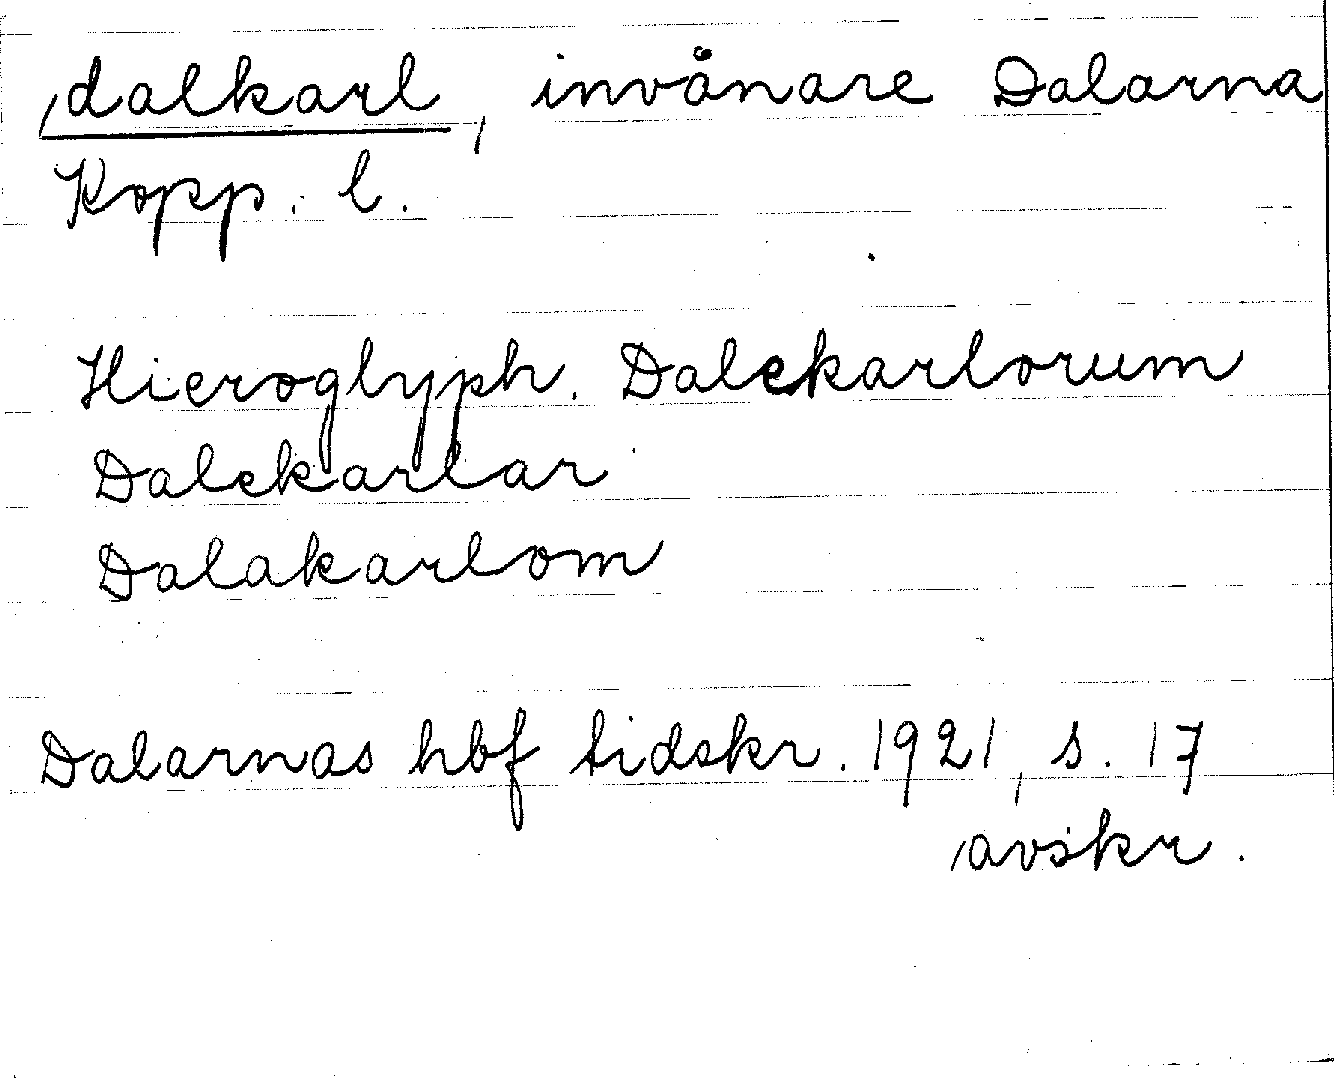 dalkarl, invånare Dalarna
Kopp. l.
Hieroglyph. Dalekarlorum
Dalekarlar
Dalakarlom
Dalarnas hbf tidskr. 1921, s. 17
avskr.